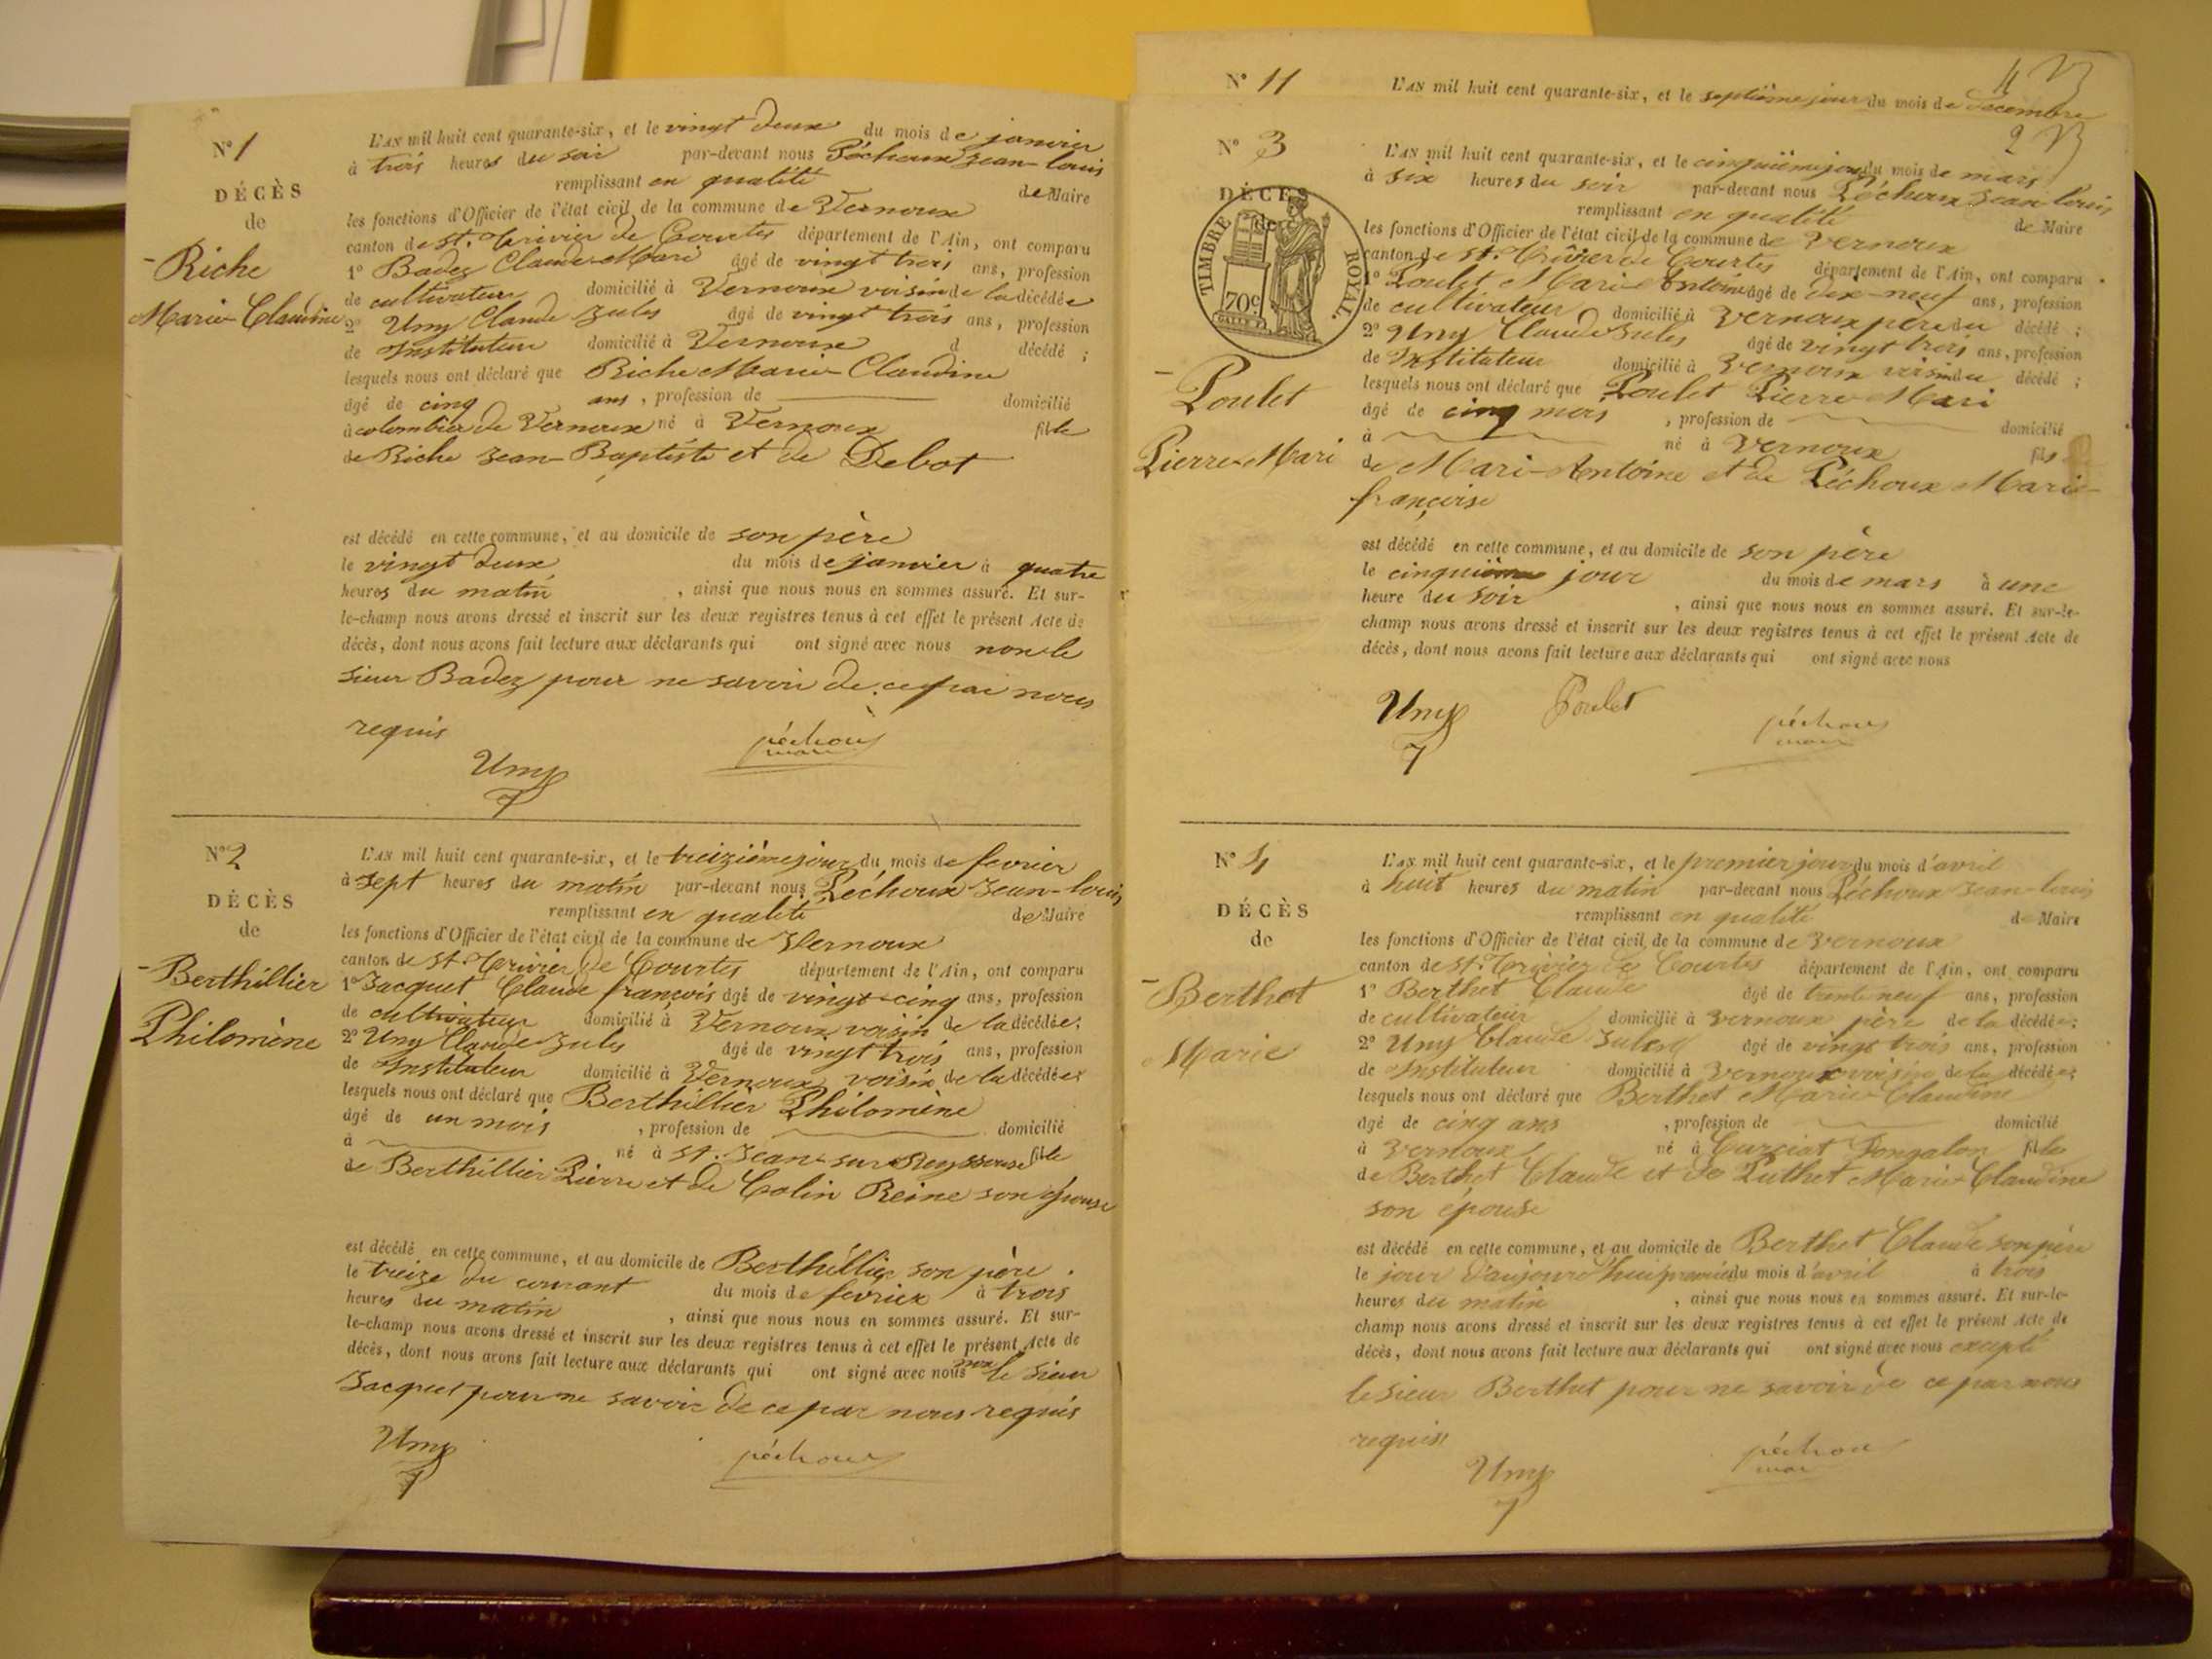 N° 1
DÉCÈS
de
Riche
Marie-Claudine
L'AN mil huit cent quarante-six, et le vingt deux du mois de janvier
à trois heures du soir par-devant nous Péchoux Jean-louis
remplissant en qualité de Maire
les fonctions d'Officier de l'état civil de la commune de Vernoux
canton de St. Trivier de Courtes département de l'Ain, ont comparu
1° Badez Claude Mari âgé de vingt trois ans, profession
de cultivateur domicilié à Vernoux voisin de la décédée
2° Uny Claude Jules âgé de vingt trois ans, profession
de Instituteur domicilié à Vernoux d décédé ;
lesquels nous ont déclaré que Riche Marie-Claudine
âgé de cinq ans, profession de domicilié
à colombier de Vernoux né à Vernoux fille
de Riche Jean-Baptiste et de Debot
est décédé en cette commune, et au domicile de son père
le vingt deux du mois de janvier à quatre
heures du matin , ainsi que nous nous en sommes assuré. Et sur-
le-champ nous avons dressé et inscrit sur les deux registres tenus à cet effet le présent Acte de
décès, dont nous avons fait lecture aux déclarants qui ont signé avec nous non le
sieur Badez pour ne savoir de ce par nous
requis
Uny péchoux
maire
N° 2
DÉCÈS
de
Berthillier
Philomène
L'AN mil huit cent quarante-six, et le treizième jour du mois de fevrier
à sept heures du matin par-devant nous Péchoux Jean-louis
remplissant en qualité de Maire
les fonctions d'Officier de l'état civil de la commune de Vernoux
canton de St. Trivier de Courtes département de l'Ain, ont comparu
1° Jacquet Claude françois âgé de vingt-cinq ans, profession
de cultivateur domicilié à Vernoux voisin de la décédée;
2° Uny Claude Jules âgé de vingt trois ans, profession
de Instituteur domicilié à Vernoux voisin de la décédée;
lesquels nous ont déclaré que Berthillier Philomène
âgé de un mois , profession de domicilié
à né à St. Jean-sur-Reyssouse fille
de Berthillier Pierre et de Colin Reine son épouse
est décédé en cette commune, et au domicile de Berthillier son père.
le treize du courant du mois de fevrier à trois
heures du matin , ainsi que nous nous en sommes assuré. Et sur-
le-champ nous avons dressé et inscrit sur les deux registres tenus à cet effet le présent Acte de
décès, dont nous avons fait lecture aux déclarants qui ont signé avec nous non le sieur
Jacquet pour ne savoir de ce par nous requis
Uny péchoux
N° 11 L'AN mil huit cent quarante-six, et le septième jour du mois de decembre
4
2
N° 3
DÉCÈS
de
TIMBRE ROYAL.
70c
Poulet
Pierre-Mari
L'AN mil huit cent quarante-six, et le cinquième jour du mois de mars
à six heures du soir par-devant nous Péchoux Jean louis
remplissant en qualité de Maire
les fonctions d'Officier de l'état civil de la commune de Vernoux
canton de St. Trivier de Courtes département de l'Ain, ont comparu
1° Poulet Mari-Antoine âgé de dix-neuf ans, profession
de cultivateur domicilié à Vernoux père du décédé ;
2° Uny Claude Jules âgé de vingt trois ans, profession
de Instituteur domicilié à Vernoux voisin du décédé ;
lesquels nous ont déclaré que Poulet Pierre-Mari
âgé de cinq mois , profession de domicilié
à né à Vernoux fils
de Mari-Antoine et de Péchoux Marie-
françoise
est décédé en cette commune, et au domicile de son père
le cinquième jour du mois de mars à une
heure du soir , ainsi que nous nous en sommes assuré. Et sur-le-
champ nous avons dressé et inscrit sur les deux registres tenus à cet effet le présent Acte de
décès, dont nous avons fait lecture aux déclarants qui ont signé avec nous
Uny Poulet péchoux
maire
N° 4
DÉCÈS
de
Berthet
Marie
L'AN mil huit cent quarante-six, et le premier jour du mois d'avril
à huit heures du matin par-devant nous Péchoux Jean-louis
remplissant en qualité de Maire
les fonctions d'Officier de l'état civil de la commune de Vernoux
canton de St. Trivier de Courtes département de l'Ain, ont comparu
1° Berthet Claude âgé de trente neuf ans, profession
de cultivateur domicilié à Vernoux père de la décédée;
2° Uny Claude Jules âgé de vingt trois ans, profession
de Instituteur domicilié à Vernoux voisin de la décédée;
lesquels nous ont déclaré que Berthet Marie-Claudine
âgé de cinq ans , profession de domicilié
à Vernoux né à Curciat Dongalon fille
de Berthet Claude et de Puthet Marie-Claudine
son épouse
est décédé en cette commune, et au domicile de Berthet Claude son père
le jour d'aujourd'hui premier du mois d'avril à trois
heures du matin , ainsi que nous nous en sommes assuré. Et sur-le-
champ nous avons dressé et inscrit sur les deux registres tenus à cet effet le présent Acte de
décès, dont nous avons fait lecture aux déclarants qui ont signé avec nous excepté
le sieur Berthet pour ne savoir de ce par nous
requis
Uny péchoux
maire